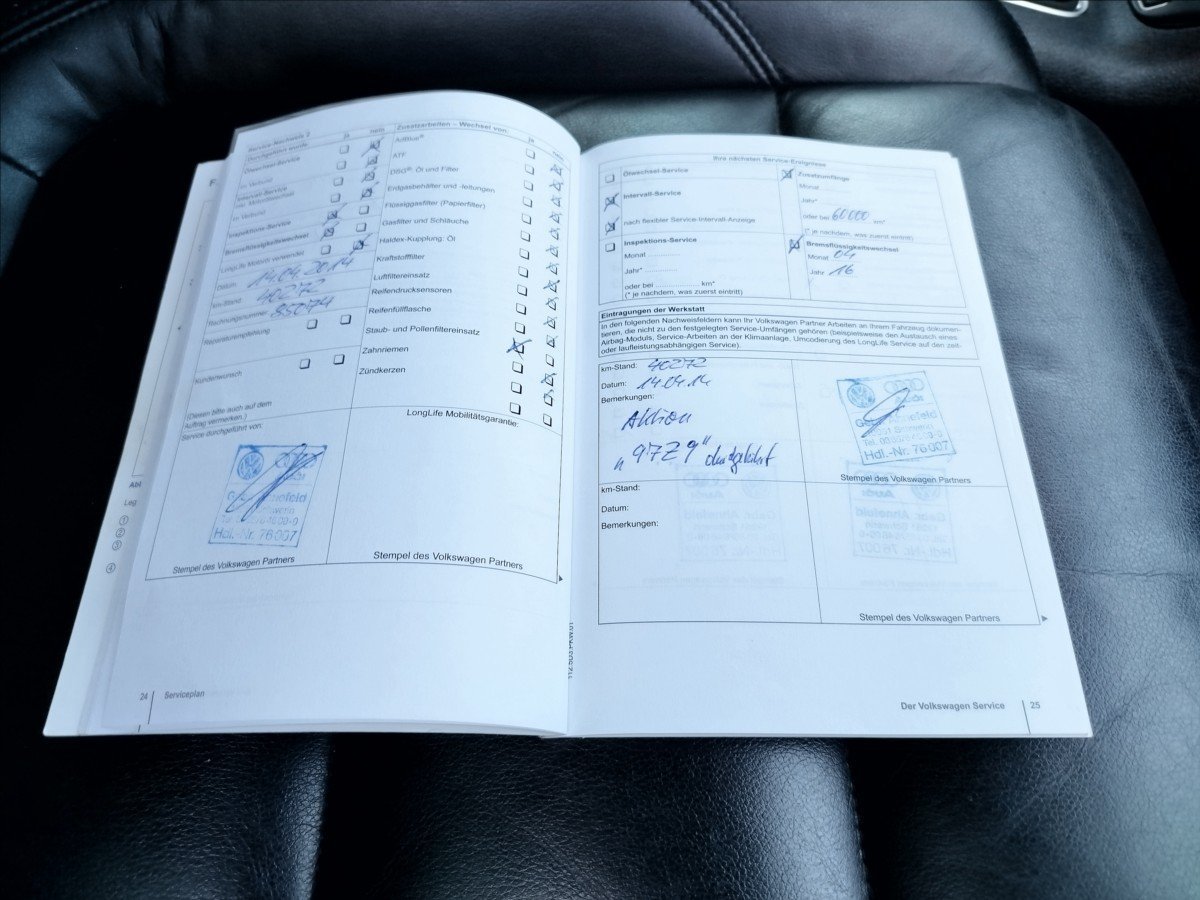 Service-Nachweis 2
Durchgeführt wurde: ja nein
Ölwechsel-Service
im Verbund
Intervall-Service
inkl. Motorölwechsel
im Verbund
Inspektions-Service
Bremsflüssigkeitswechsel
LongLife Motoröl verwendet
Datum 14.04.2014
km-Stand: 40272
Rechnungsnummer: 85074
Reparaturempfehlung
Kundenwunsch
(Diesen bitte auch auf dem
Auftrag vermerken.)
Service durchgeführt von:
Hdl.-Nr. 76 007
Stempel des Volkswagen Partners
Zusatzarbeiten – Wechsel von: ja nein
AdBlue®
ATF
DSG®: Öl und Filter
Erdgasbehälter und -leitungen
Flüssiggasfilter (Papierfilter)
Gasfilter und Schläuche
Haldex-Kupplung: Öl
Kraftstofffilter
Luftfiltereinsatz
Reifendrucksensoren
Reifenfüllflasche
Staub- und Pollenfiltereinsatz
Zahnriemen
Zündkerzen
LongLife Mobilitätsgarantie:
Stempel des Volkswagen Partners
24 Serviceplan
F
Abl
Leg
①
②
③
④
Ihre nächsten Service-Ereignisse
Ölwechsel-Service
Intervall-Service
nach flexibler Service-Intervall-Anzeige
Inspektions-Service
Monat ..............
Jahr* ..............
oder bei ........................ km*
(* je nachdem, was zuerst eintritt)
Zusatzumfänge
Monat
Jahr*
oder bei 60000 km*
(* je nachdem, was zuerst eintritt)
Bremsflüssigkeitswechsel
Monat 04
Jahr 16
Eintragungen der Werkstatt
In den folgenden Nachweisfeldern kann Ihr Volkswagen Partner Arbeiten an Ihrem Fahrzeug dokumen-
tieren, die nicht zu den festgelegten Service-Umfängen gehören (beispielsweise den Austausch eines
Airbag-Moduls, Service-Arbeiten an der Klimaanlage, Umcodierung des LongLife Service auf den zeit-
oder laufleistungsabhängigen Service).
km-Stand: 40272
Datum: 14.04.14
Bemerkungen:
Aktion
„97Z9“ durchgeführt
Audi
Hdl.-Nr. 76 007
Stempel des Volkswagen Partners
km-Stand:
Datum:
Bemerkungen:
Stempel des Volkswagen Partners
Der Volkswagen Service 25